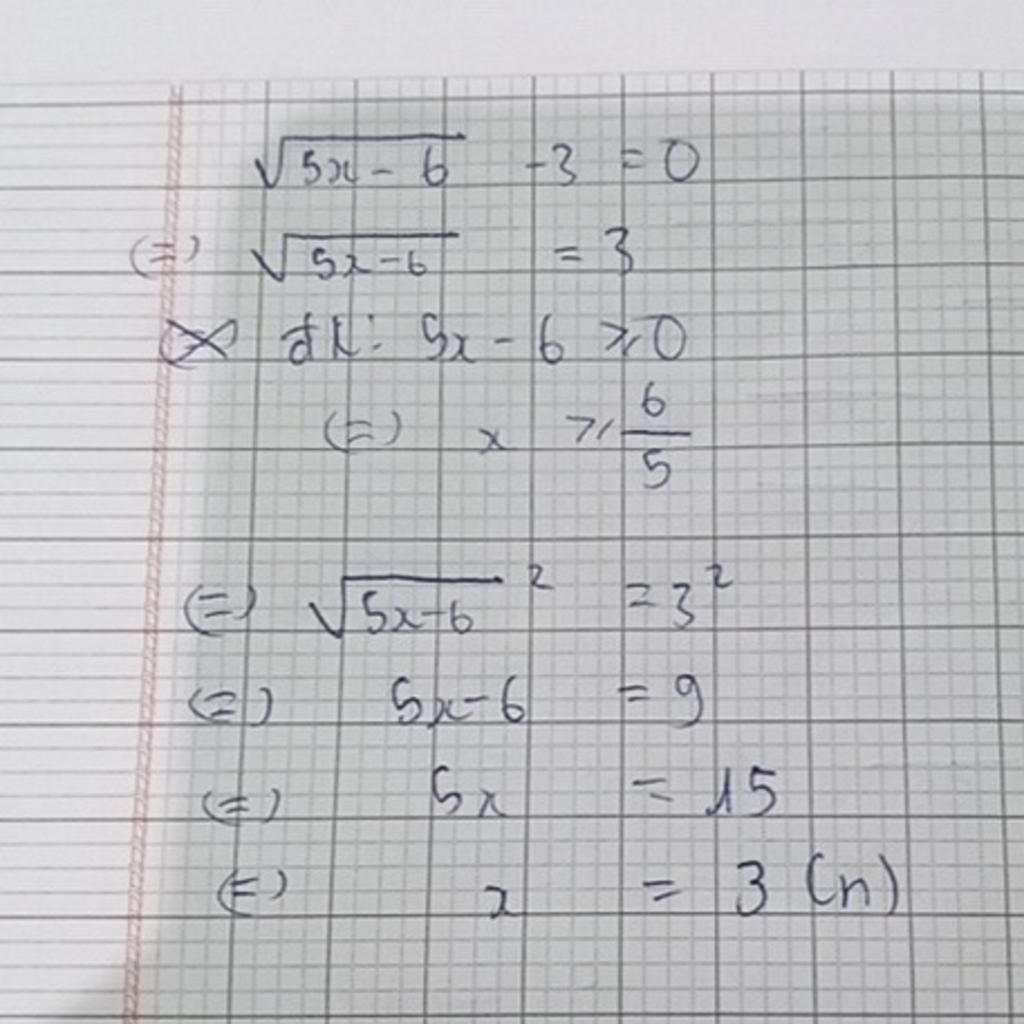 √(5x - 6) - 3 = 0
(=) √(5x - 6) = 3
đk: 5x - 6 ⩾ 0
(=) x ⩾ 6/5
(=) √(5x - 6)² = 3²
(=) 5x - 6 = 9
(=) 5x = 15
(=) x = 3 (n)